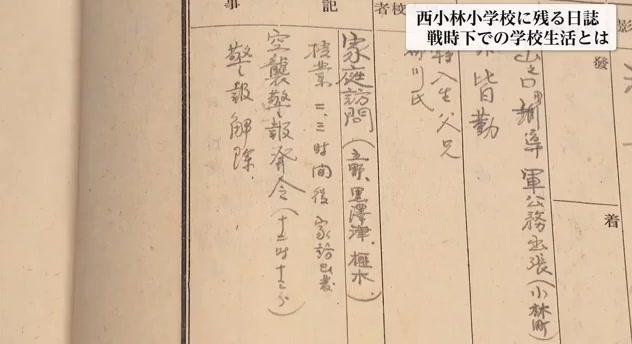 西小林小学校に残る日誌
戦時下での学校生活とは
影
發
着
校
者
記
事
軍公務出張(小林町)
皆勤
入生父兄
川氏
家庭訪問(立野、黒澤津、種水)
授業二、三时间後家訪
空襲警報発令(十二时十二分)
警報解除